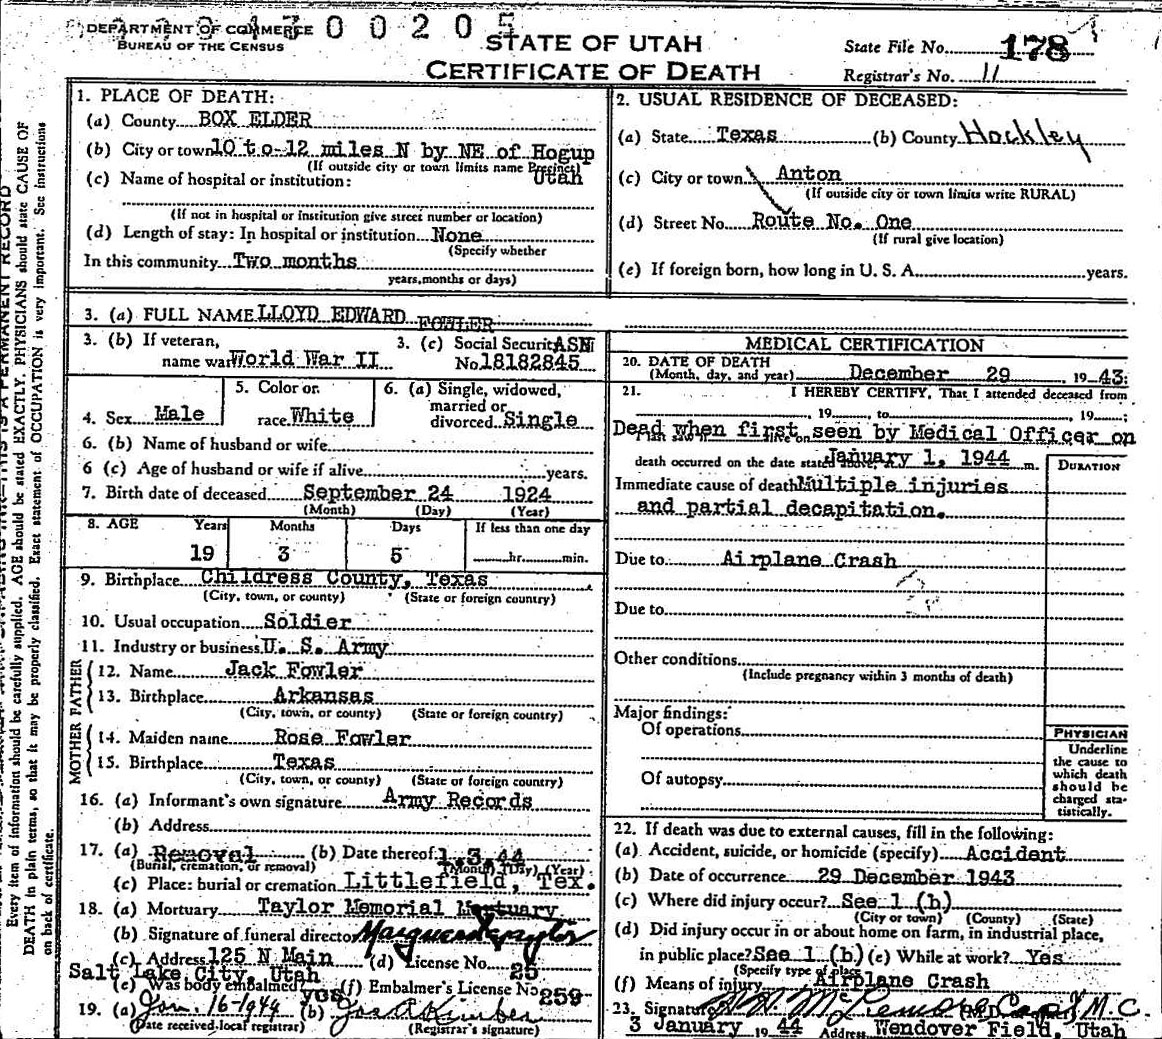 DEPARTMENT OF COMMERCE
BUREAU OF THE CENSUS
00205
STATE OF UTAH
CERTIFICATE OF DEATH
State File No. 178
Registrar's No. 11
1. PLACE OF DEATH:
(a) County BOX ELDER
(b) City or town 10 to-12 miles N by NE of Hogup
(If outside city or town limits name Precinct)
Utah
(c) Name of hospital or institution:
(If not in hospital or institution give street number or location)
(d) Length of stay: In hospital or institution None
(Specify whether
In this community Two months
years, months or days)
2. USUAL RESIDENCE OF DECEASED:
(a) State Texas (b) County Hockley
(c) City or town Anton
(If outside city or town limits write RURAL)
(d) Street No. Route No. One
(If rural give location)
(e) If foreign born, how long in U. S. A. years.
3. (a) FULL NAME LLOYD EDWARD FOWLER
3. (b) If veteran,
name war World War II
3. (c) Social Security ASN
No. 18182845
4. Sex Male
5. Color or
race White
6. (a) Single, widowed,
married or
divorced Single
6. (b) Name of husband or wife
6 (c) Age of husband or wife if alive years.
7. Birth date of deceased September 24 1924
(Month) (Day) (Year)
8. AGE Years Months Days If less than one day
19 3 5 hr. min.
9. Birthplace Childress County, Texas
(City, town, or county) (State or foreign country)
10. Usual occupation Soldier
11. Industry or business U. S. Army
FATHER
12. Name Jack Fowler
13. Birthplace Arkansas
(City, town, or county) (State or foreign country)
MOTHER
14. Maiden name Rose Fowler
15. Birthplace Texas
(City, town, or county) (State or foreign country)
16. (a) Informant's own signature Army Records
(b) Address
17. (a) Removal (b) Date thereof 1.3.44
(Burial, cremation, or removal) (Month) (Day) (Year)
(c) Place: burial or cremation Littlefield, Tex.
18. (a) Mortuary Taylor Memorial Mortuary
(b) Signature of funeral director Marguerite Taylor
(c) Address 125 N Main (d) License No. 25
Salt Lake City, Utah
(e) Was body embalmed? yes (f) Embalmer's License No 259
19. (a) Jan. 16-1944 (b) Jos A Kimber
(Date received local registrar) (Registrar's signature)
MEDICAL CERTIFICATION
20. DATE OF DEATH
(Month, day, and year) December 29 19 43:
21. I HEREBY CERTIFY, That I attended deceased from
, 19 , to , 19 ;
Dead when first seen by Medical Officer on
death occurred on the date stated above, January 1, 1944 m.
DURATION
Immediate cause of death Multiple injuries
and partial decapitation.
Due to Airplane Crash
Due to
Other conditions
(Include pregnancy within 3 months of death)
Major findings:
Of operations
Of autopsy
PHYSICIAN
Underline
the cause to
which death
should be
charged sta-
tistically.
22. If death was due to external causes, fill in the following:
(a) Accident, suicide, or homicide (specify) Accident
(b) Date of occurrence 29 December 1943
(c) Where did injury occur? See 1 (b)
(City or town) (County) (State)
(d) Did injury occur in or about home on farm, in industrial place,
in public place? See 1 (b) (e) While at work? Yes
(Specify type of place)
(f) Means of injury Airplane Crash
23. Signature Capt M.C.
3 January 19 44 Address Wendover Field, Utah
THIS IS A PERMANENT RECORD
Every item of information should be carefully supplied. AGE should be stated EXACTLY. PHYSICIANS should state CAUSE OF
DEATH in plain terms, so that it may be properly classified. Exact statement of OCCUPATION is very important. See instructions
on back of certificate.